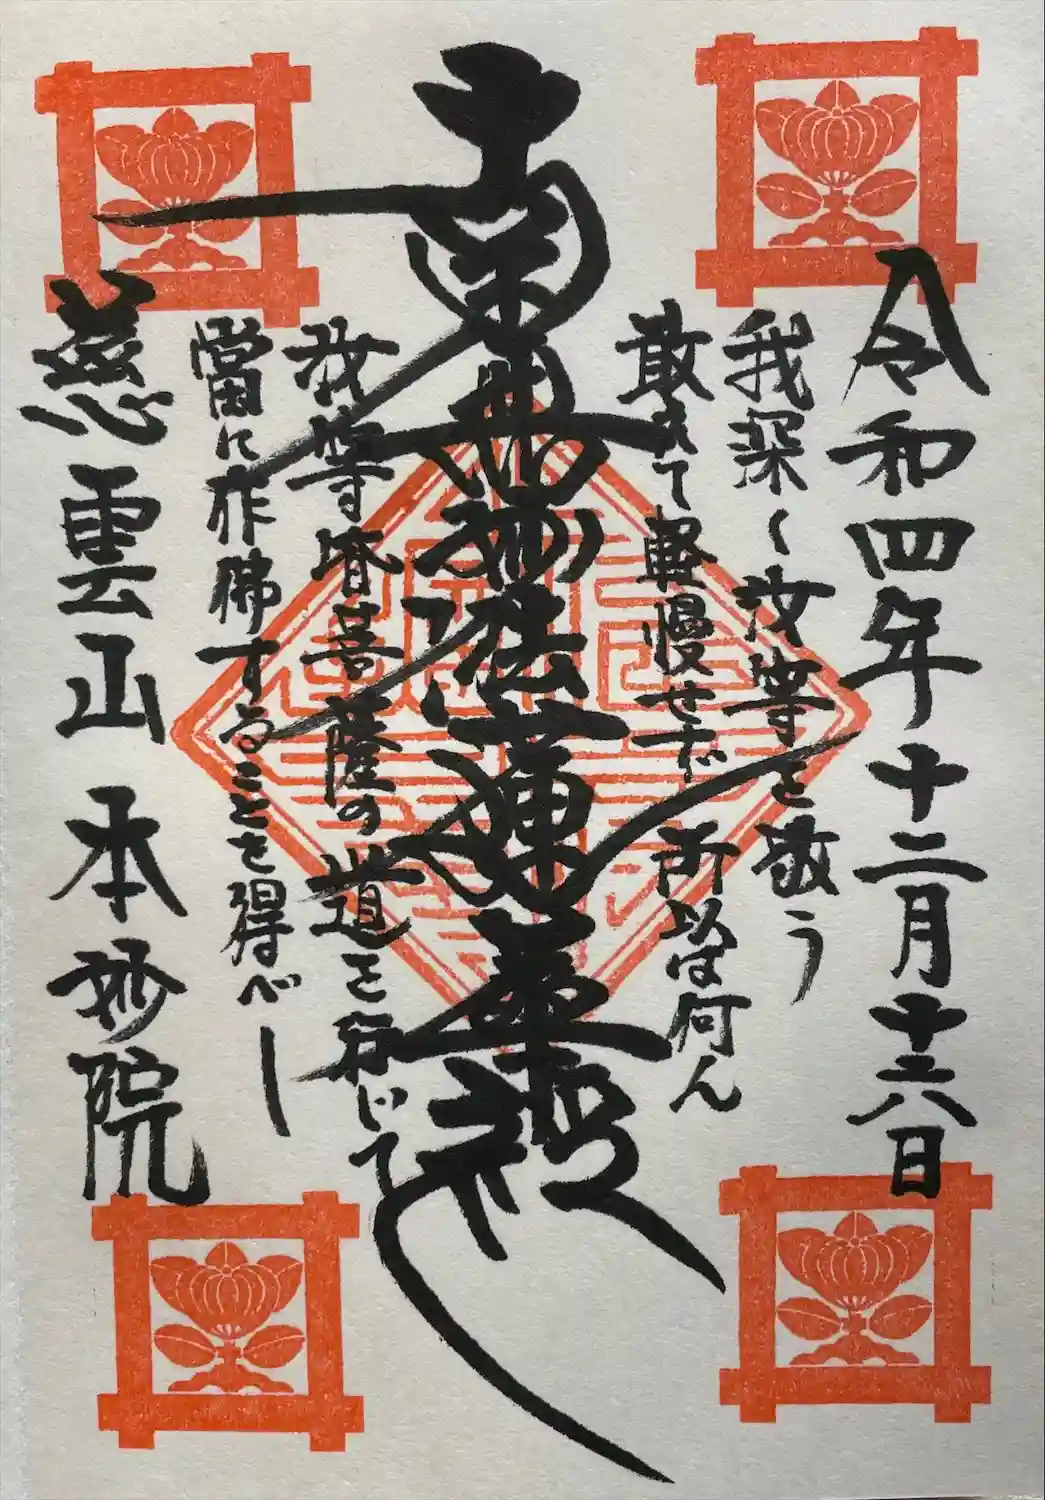 令和四年十二月十六日
我深く汝等を敬う
敢えて軽慢せず 所以は何ん
南無妙法蓮華経
汝等皆菩薩の道を行じて
當に作佛することを得べし
慈雲山 本妙院